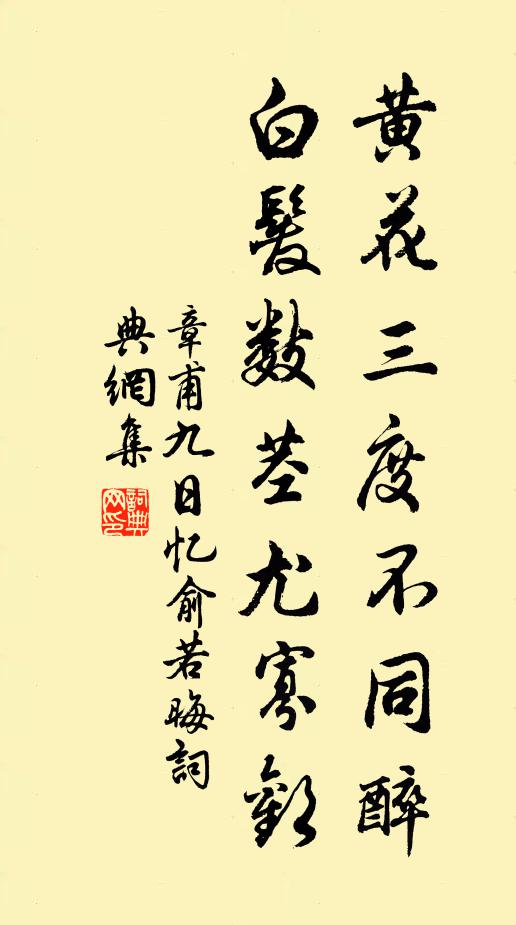 黄花三度不同醉
白髮数茎尤寡歡
章甫九日忆俞若晦詞
典網集
詞典
网印